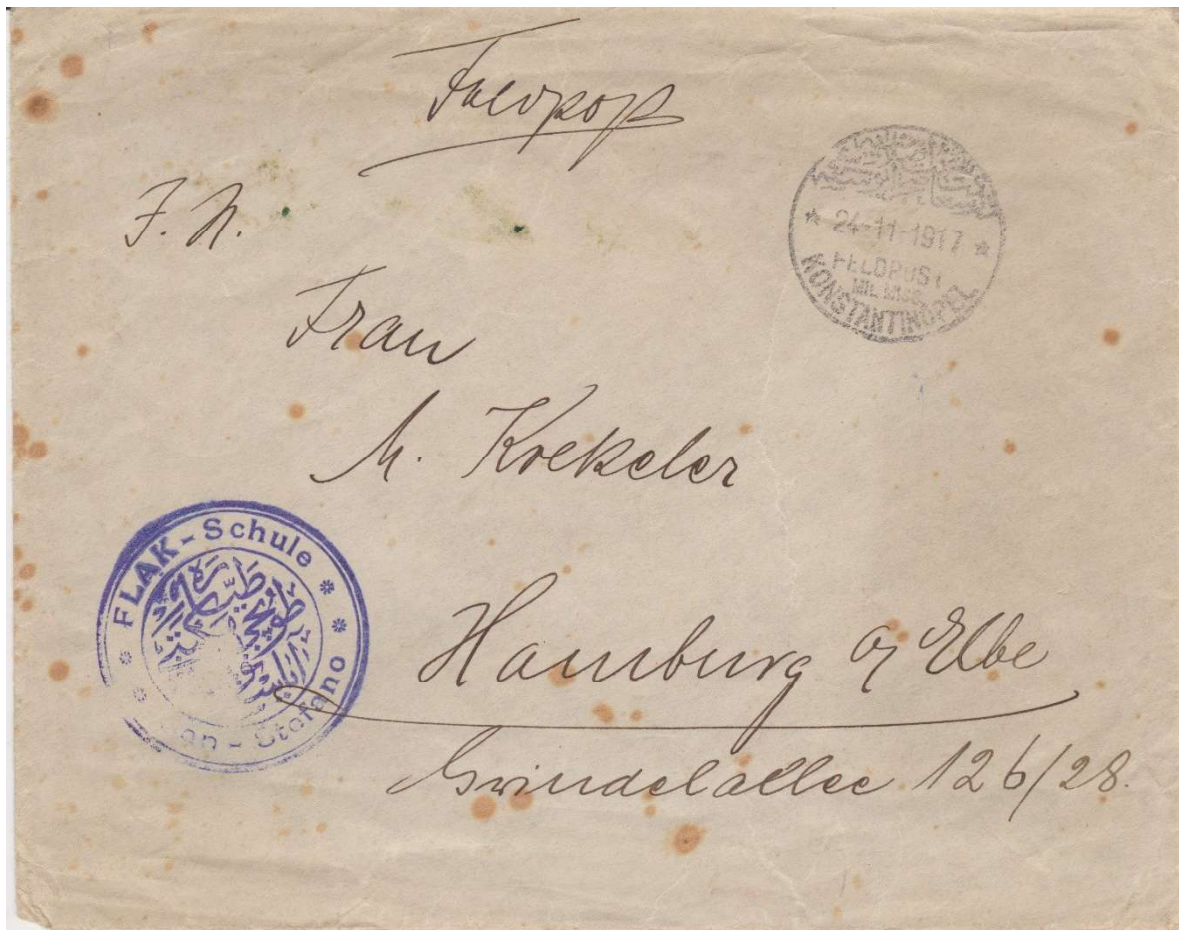 Feldpost
F. N.
★ 24-11-1917 ★
FELDPOST
MIL. MISS.
KONSTANTINOPEL
Frau
M. Krekeler
FLAK-Schule
San-Stefano
Hamburg a/Elbe
Grindelallee 126/28.